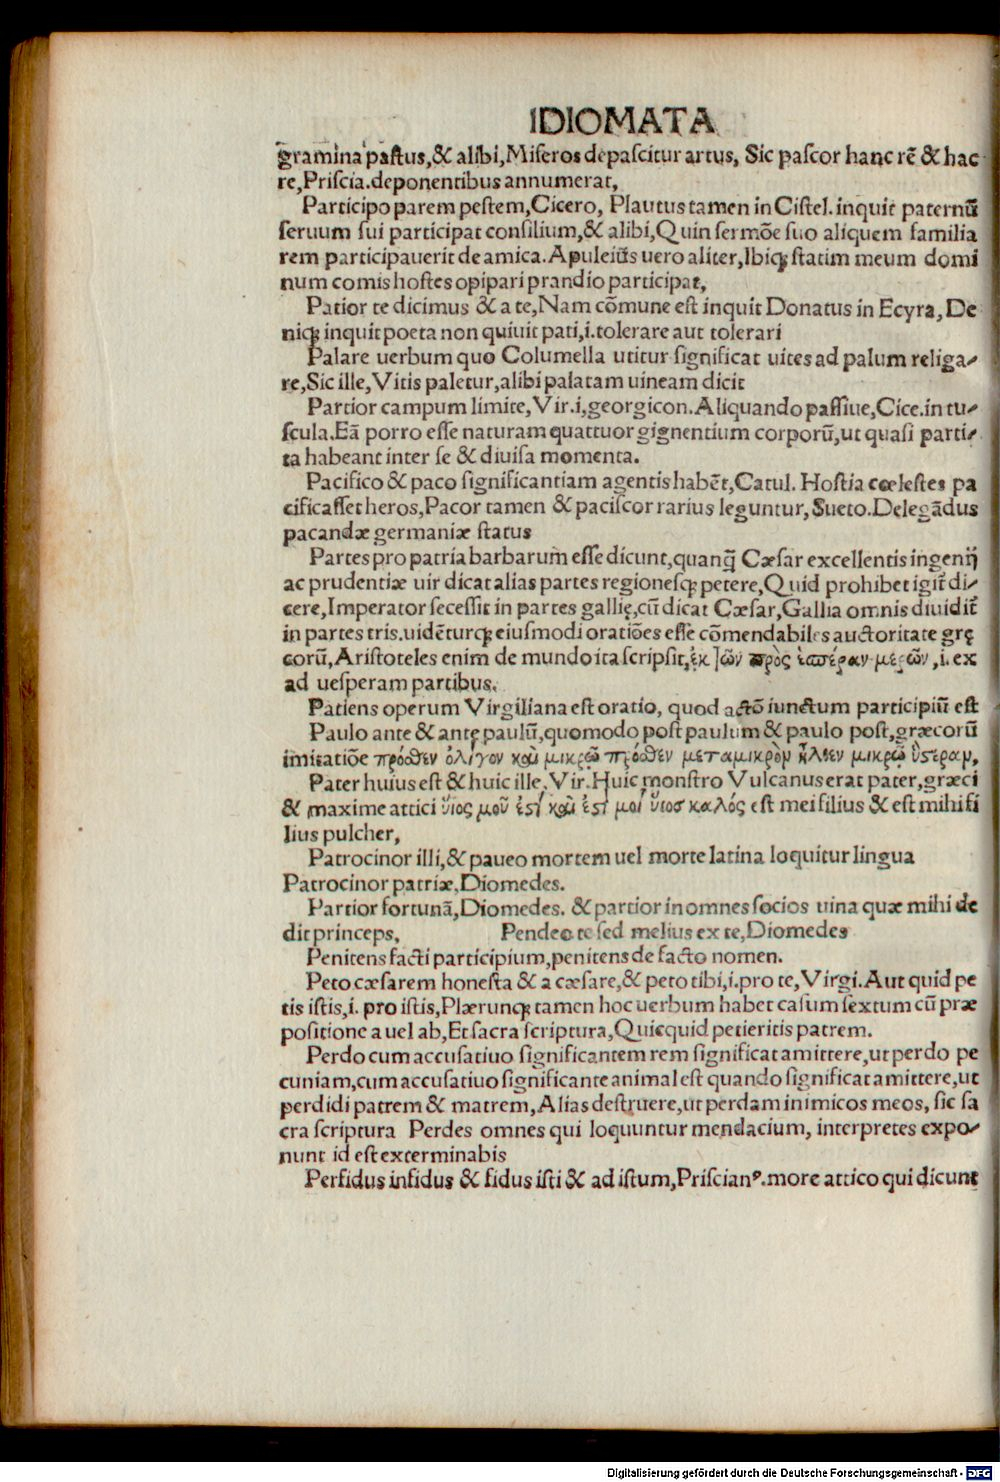 IDIOMATA
gramina pastus,& alibi,Miseros depascitur artus, Sic pascor hanc rē & hac
re,Priscia.deponentibus annumerat,
Participo parem pestem,Cicero, Plautus tamen in Cistel.inquit paternū
seruum sui participat consilium,& alibi,Quin sermōe suo aliquem familia
rem participauerit de amica.Apuleius uero aliter,Ibiqꝫ statim meum domi
num comis hostes opipari prandio participat,
Patior te dicimus & a te,Nam cōmune est inquit Donatus in Ecyra,De
niqꝫ inquit poeta non quiuit pati,i.tolerare aut tolerari
Palare uerbum quo Columella utitur significat uites ad palum religa⸗
re,Sic ille,Vitis paletur,alibi palatam uineam dicit
Partior campum limite,Vir.i,georgicon.Aliquando passiue,Cice.in tu⸗
scula.Eā porro esse naturam quattuor gignentium corporū,ut quasi parti⸗
ta habeant inter se & diuisa momenta.
Pacifico & paco significantiam agentis habēt,Catul. Hostia cœlestes pa
cificasset heros,Pacor tamen & paciscor rarius leguntur,Sueto.Delegādus
pacandæ germaniæ status
Partes pro patria barbarum esse dicunt,quanq̄ Cæsar excellentis ingenij
ac prudentiæ uir dicat alias partes regionesqꝫ petere,Quid prohibet igit̄ di⸗
cere,Imperator secessit in partes gallię,cū dicat Cæsar,Gallia omnis diuidit̄
in partes tris.uidēturqꝫ eiusmodi oratiōes esse cōmendabiles auctoritate grę
corū,Aristoteles enim de mundo ita scripsit,ἐκ τῶν πρὸς ἑσπέραν μερῶν,i. ex
ad uesperam partibus.
Patiens operum Virgiliana est oratio, quod actō iunctum participiū est
Paulo ante & ante paulū,quomodo post paulum & paulo post,græcorū
imitatiōe πρόσθεν ὀλίγον καὶ μικρῶ πρόσθεν μεταμικρὸν ἦλθεν μικρῷ ὕστεραν,
Pater huius est & huic ille,Vir.Huic monstro Vulcanus erat pater,græci
& maxime attici ὕιος μοῦ ἐστί καὶ ἐστί μοι ὕιοσ καλός est mei filius & est mihi fi
lius pulcher,
Patrocinor illi,& paueo mortem uel morte latina loquitur lingua
Patrocinor patriæ,Diomedes.
Partior fortunā,Diomedes. & partior in omnes socios uina quæ mihi de
dit princeps, Pendeo te sed melius ex te,Diomedes
Penitens facti participium,penitens de facto nomen.
Peto cæsarem honesta & a cæsare,& peto tibi,i.pro te,Virgi.Aut quid pe
tis istis,i. pro istis,Plærunqꝫ tamen hoc uerbum habet casum sextum cū præ
positione a uel ab,Et sacra scriptura,Quicquid petieritis patrem.
Perdo cum accusatiuo significantem rem significat amittere,ut perdo pe
cuniam,cum accusatiuo significante animal est quando significat amittere,ut
perdidi patrem & matrem,Alias destruere,ut perdam inimicos meos, sic sa
cra scriptura Perdes omnes qui loquuntur mendacium, interpretes expo⸗
nunt id est exterminabis
Perfidus infidus & fidus isti & ad istum,Priscianꝰ.more attico qui dicunt
Digitalisierung gefördert durch die Deutsche Forschungsgemeinschaft - DFG